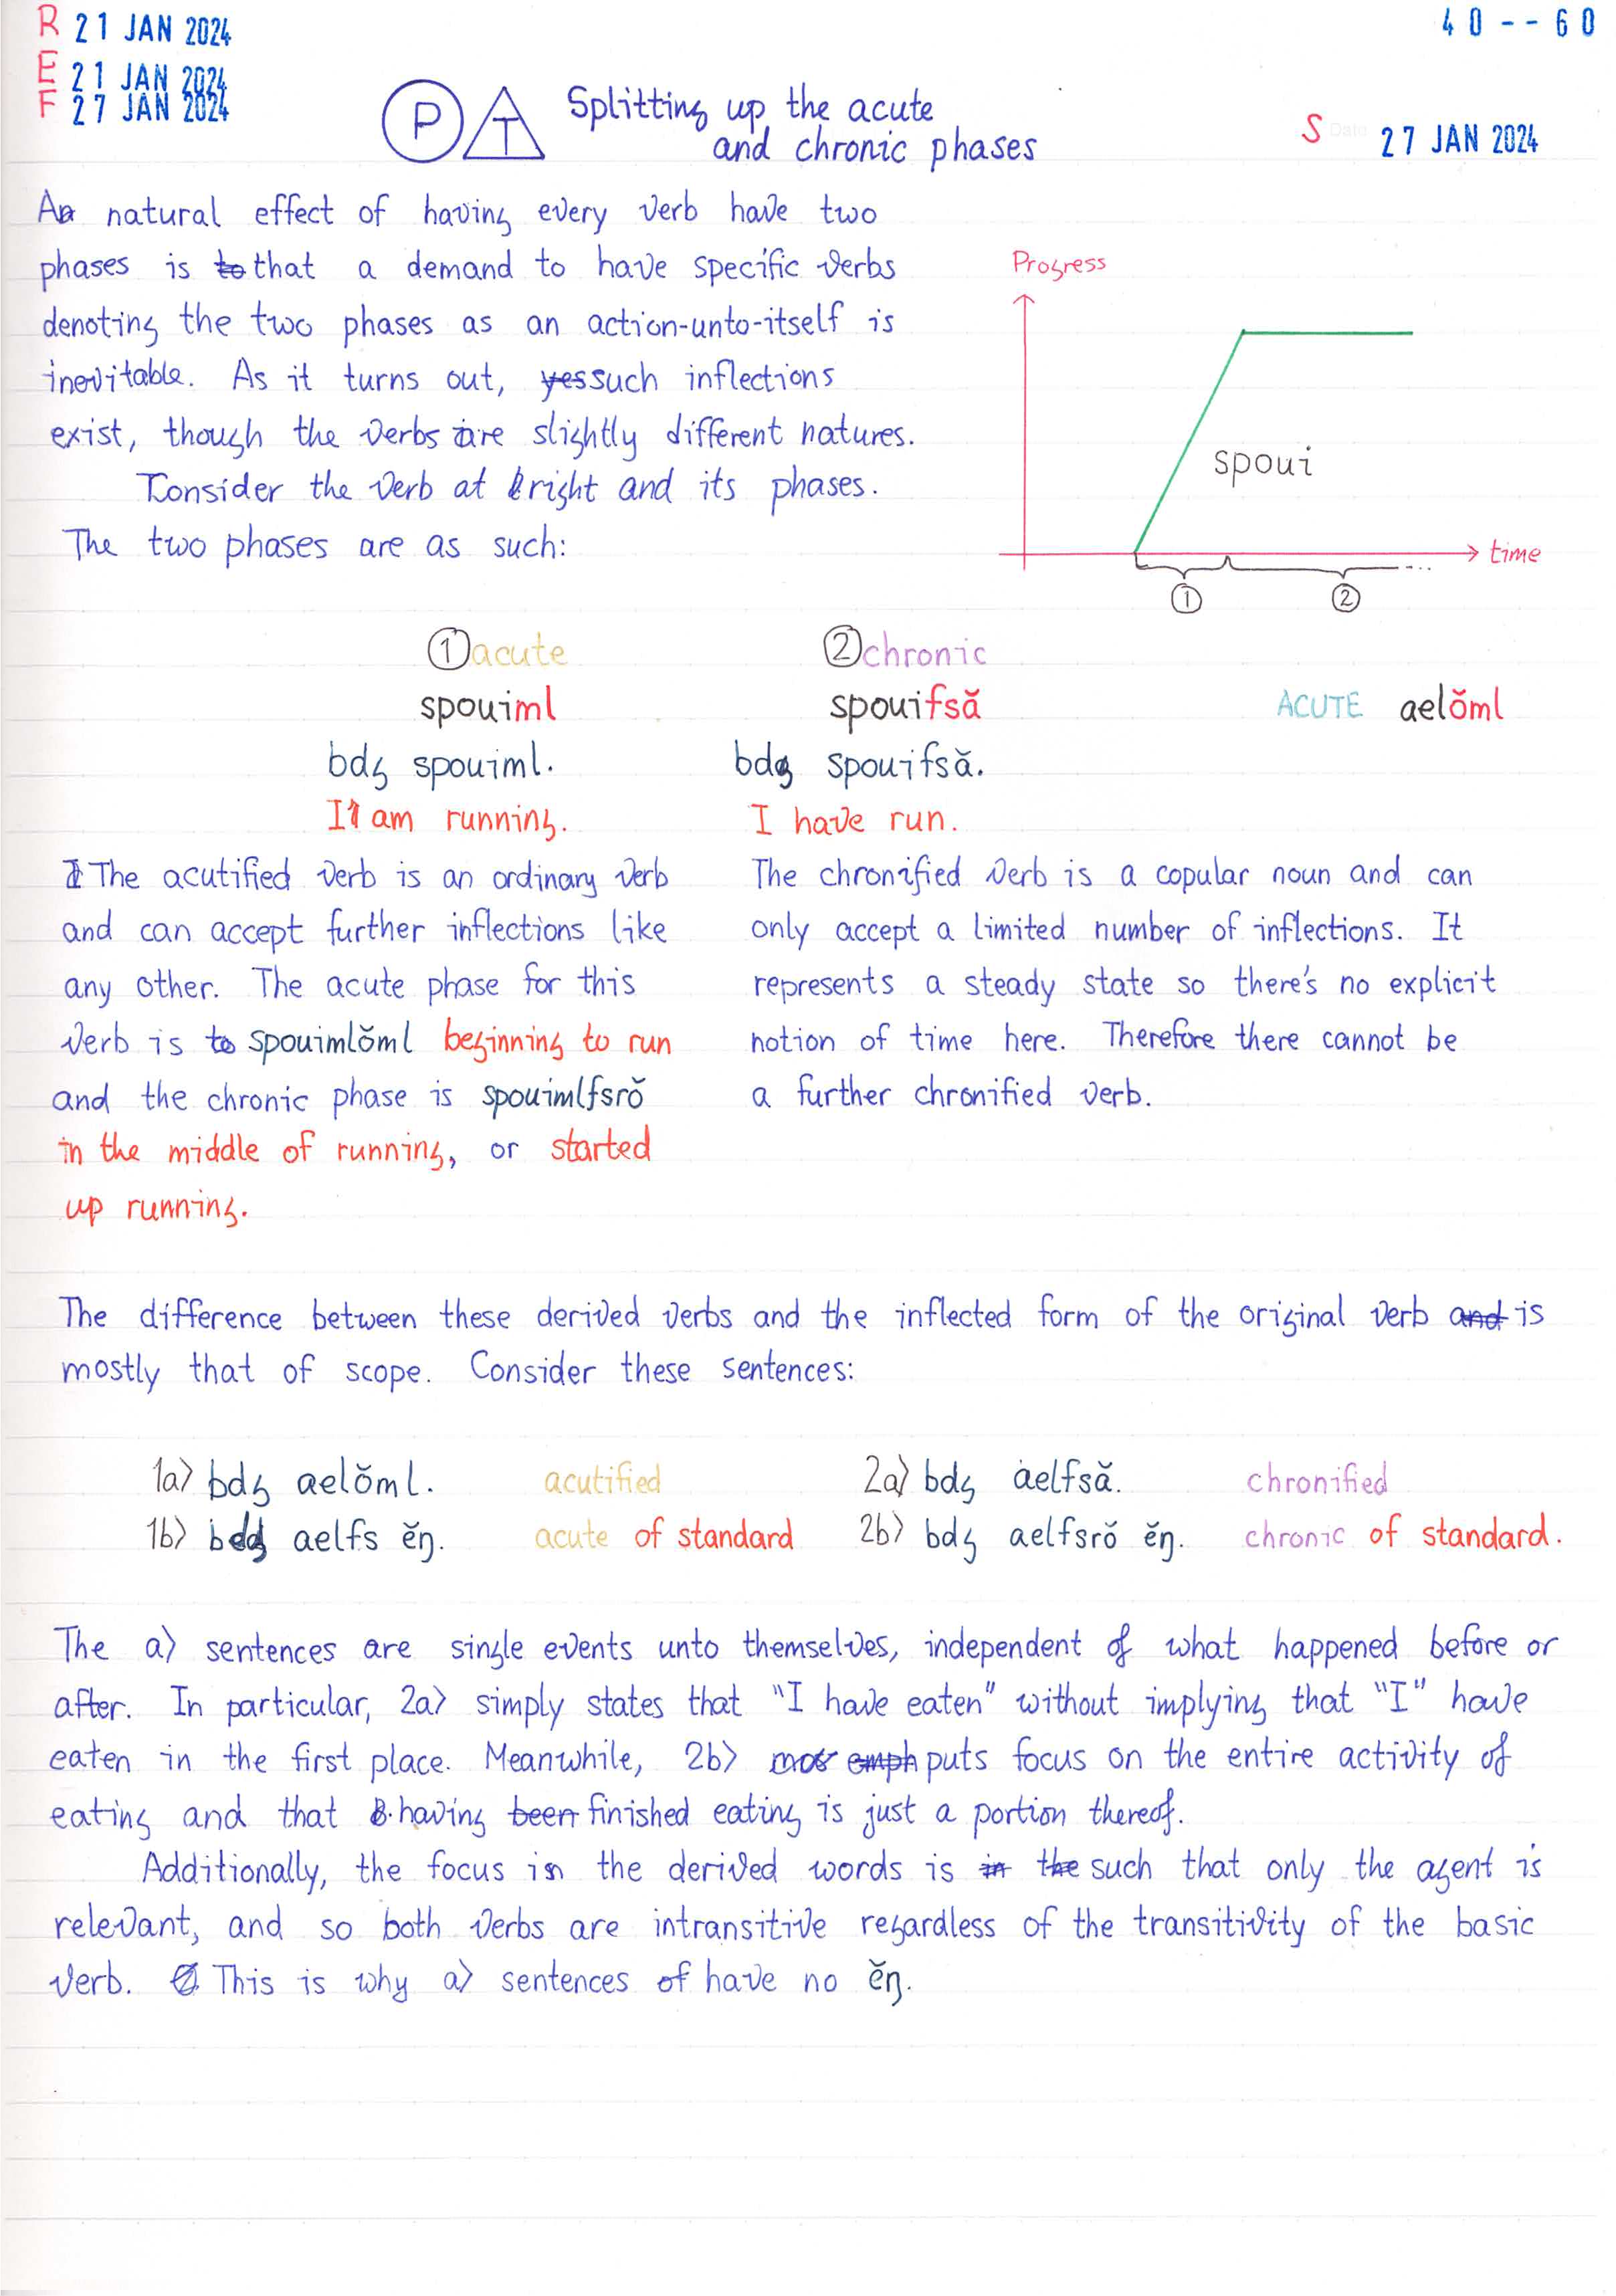 R 21 JAN 2024
E 21 JAN 2024
F 27 JAN 2024
40--60
P T Splitting up the acute
and chronic phases
S Date 27 JAN 2024
A natural effect of having every verb have two
phases is to that a demand to have specific verbs
denoting the two phases as an action-unto-itself is
inevitable. As it turns out, yes such inflections
exist, though the verbs are slightly different natures.
Consider the verb at right and its phases.
The two phases are as such:
Progress
spoui
time
① ② ...
① acute
spouiml
bdȝ spouiml.
I am running.
② chronic
spouifsă
bdȝ spouifsă.
I have run.
ACUTE aelŏml
The acutified verb is an ordinary verb
and can accept further inflections like
any other. The acute phase for this
verb is to spouimlŏml beginning to run
and the chronic phase is spouimlfsrŏ
in the middle of running, or started
up running.
The chronified verb is a copular noun and can
only accept a limited number of inflections. It
represents a steady state so there's no explicit
notion of time here. Therefore there cannot be
a further chronified verb.
The difference between these derived verbs and the inflected form of the original verb and is
mostly that of scope. Consider these sentences:
1a) bdȝ aelŏml. acutified 2a) bdȝ aelfsă. chronified
1b) bdȝ aelfs ĕŋ. acute of standard 2b) bdȝ aelfsrŏ ĕŋ. chronic of standard.
The a) sentences are single events unto themselves, independent of what happened before or
after. In particular, 2a) simply states that "I have eaten" without implying that "I" have
eaten in the first place. Meanwhile, 2b) mor emph puts focus on the entire activity of
eating and that having been finished eating is just a portion thereof.
Additionally, the focus in the derived words is in the such that only the agent is
relevant, and so both verbs are intransitive regardless of the transitivity of the basic
verb. This is why a) sentences of have no ĕŋ.